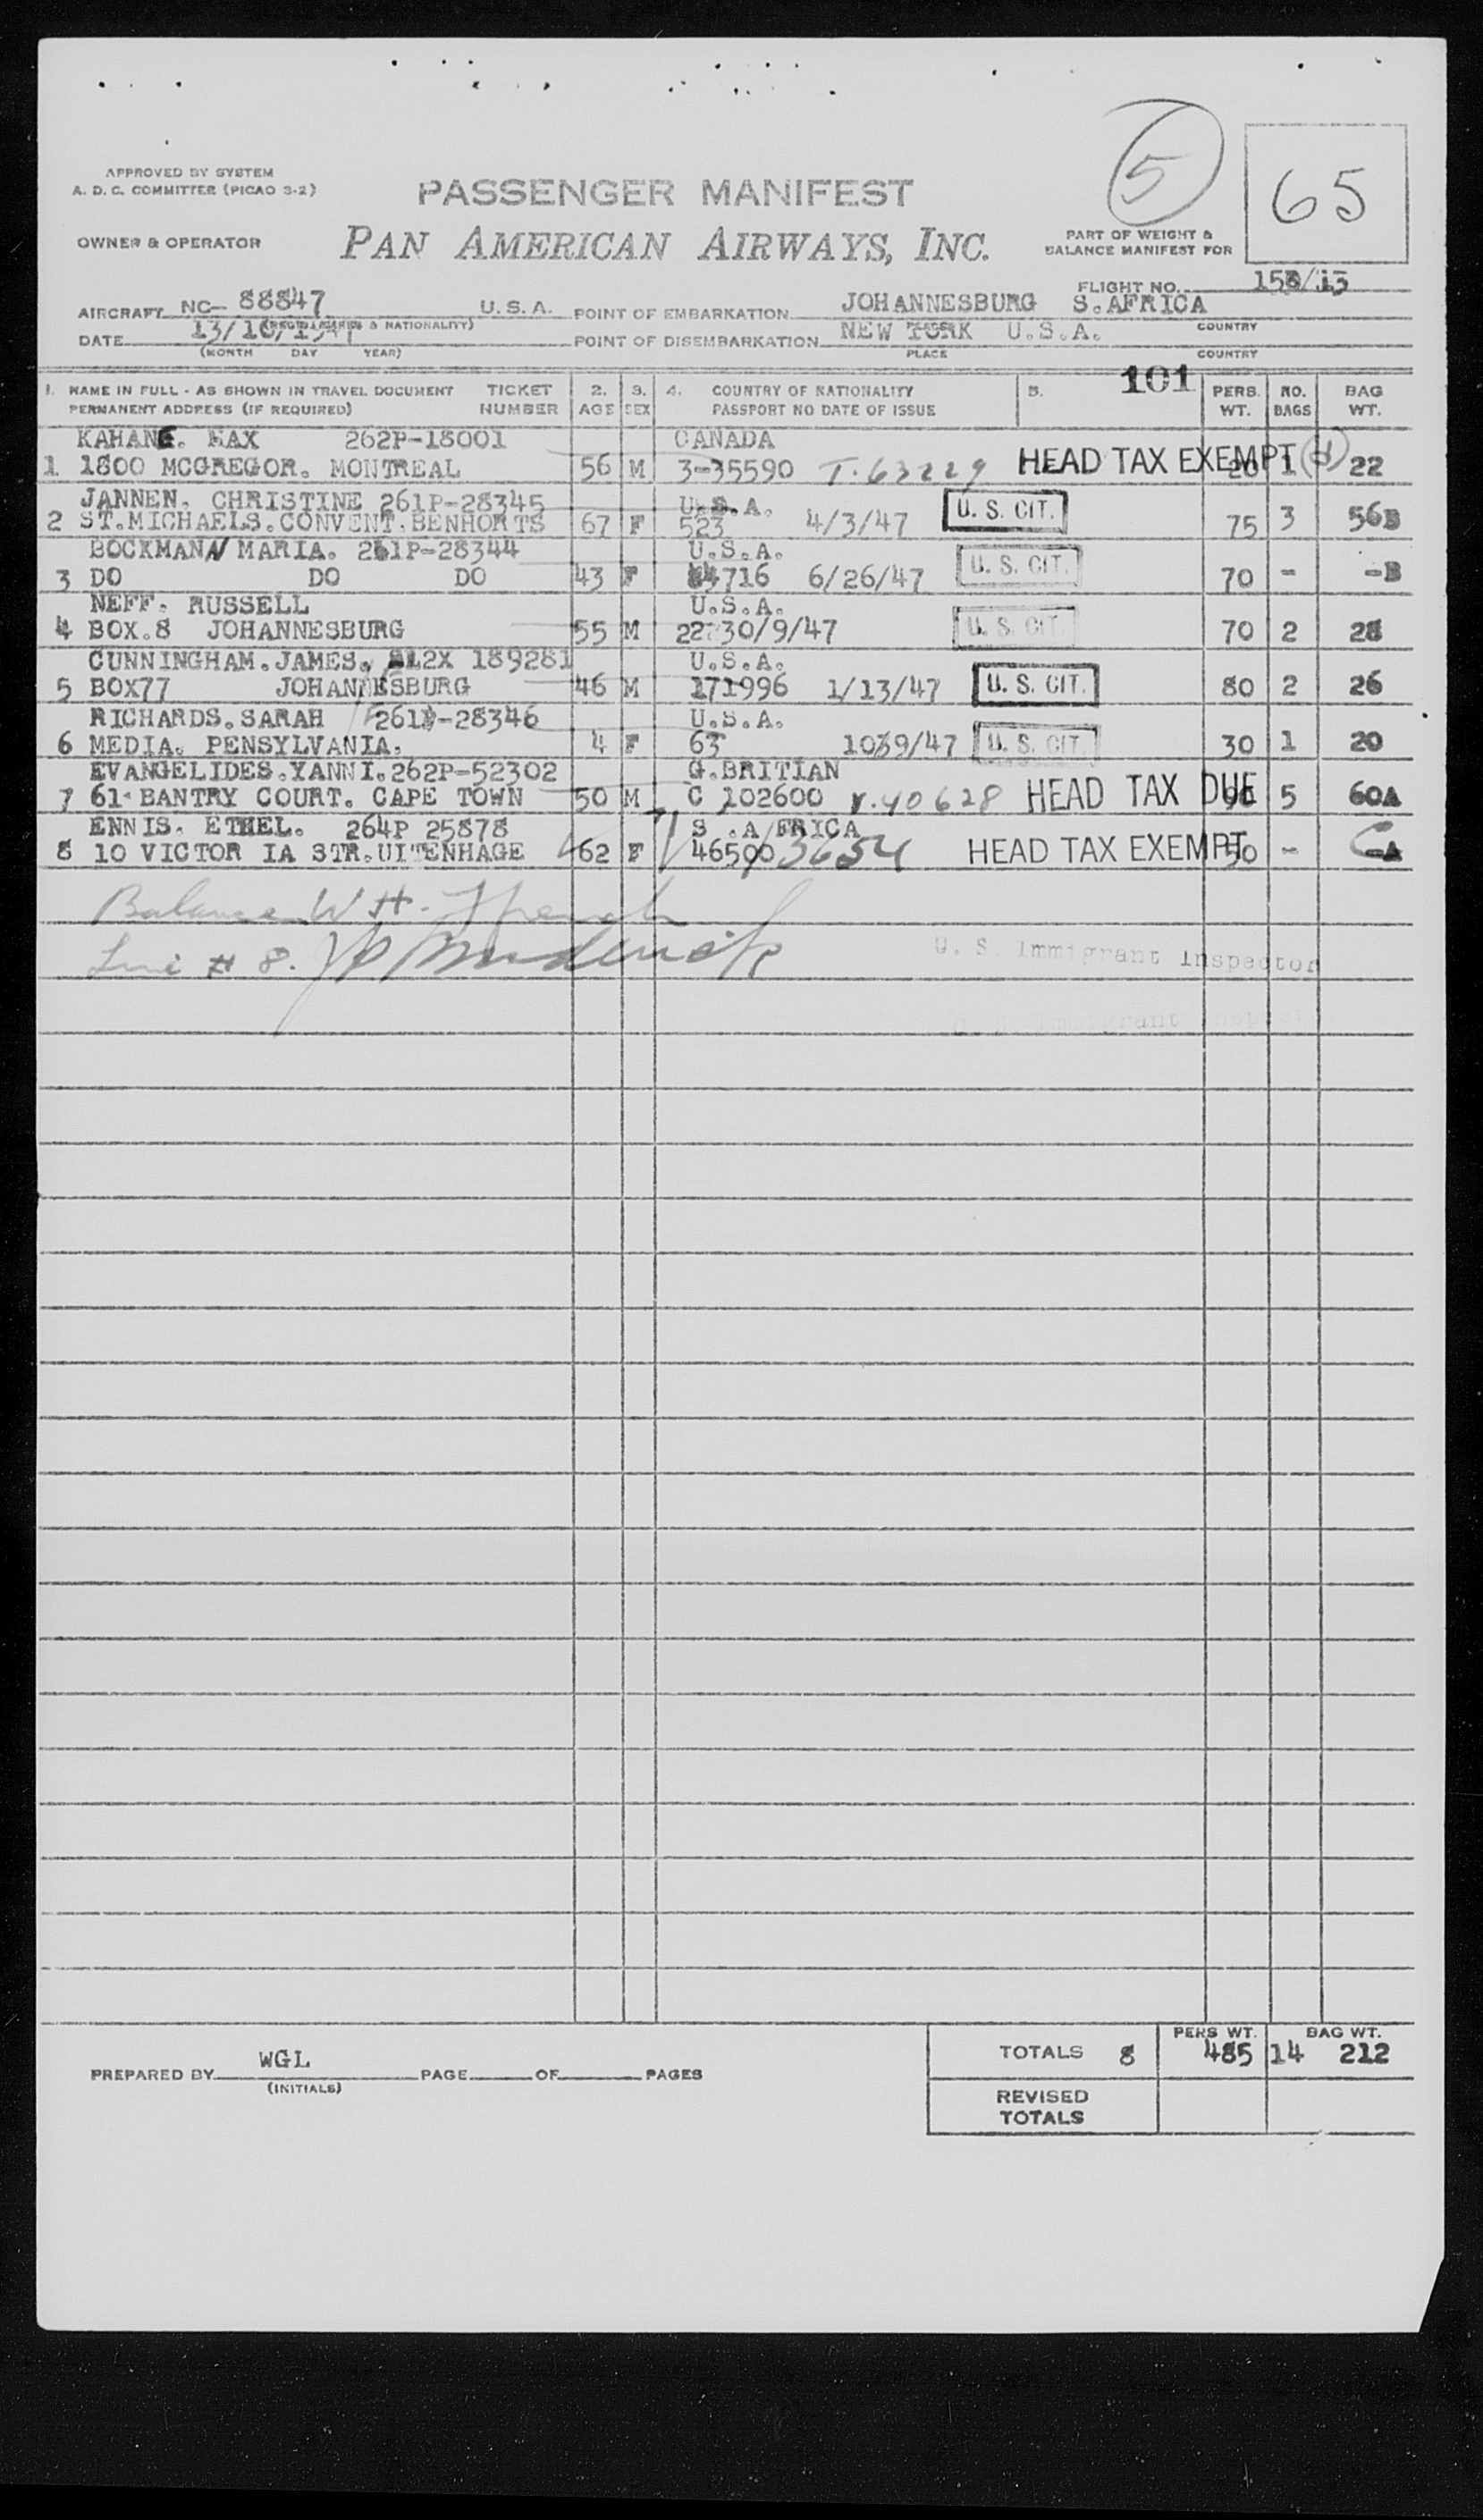 5
65
APPROVED BY SYSTEM
A. D. C. COMMITTEE (PICAO 3-2)
PASSENGER MANIFEST
OWNER & OPERATOR
PAN AMERICAN AIRWAYS, INC.
PART OF WEIGHT &
BALANCE MANIFEST FOR
FLIGHT NO. 15 /13
AIRCRAFT NC- 88847 U.S.A. POINT OF EMBARKATION JOHANNESBURG S.AFRICA
& NATIONALITY) COUNTRY
DATE 13/10/1947 POINT OF DISEMBARKATION NEW YORK U.S.A.
(MONTH DAY YEAR) PLACE COUNTRY
101
1. NAME IN FULL - AS SHOWN IN TRAVEL DOCUMENT TICKET 2. 3. 4. COUNTRY OF NATIONALITY 5. PERS. NO. BAG
PERMANENT ADDRESS (IF REQUIRED) NUMBER AGE SEX PASSPORT NO DATE OF ISSUE WT. BAGS WT.
KAHANE. MAX 262P-18001 CANADA
1 1800 MCGREGOR. MONTREAL 56 M 3-35590 T.63229 HEAD TAX EXEMPT 1 22
JANNEN. CHRISTINE 261P-28345 U.S.A.
2 ST.MICHAELS.CONVENT.BENHORTS 67 F 523 4/3/47 U. S. CIT. 75 3 56B
BOCKMANN MARIA. 261P-28344 U.S.A.
3 DO DO DO 43 F 4716 6/26/47 U. S. CIT. 70 - -B
NEFF. RUSSELL U.S.A.
4 BOX.8 JOHANNESBURG 55 M 22 30/9/47 U. S. CIT. 70 2 28
CUNNINGHAM.JAMES. 12X 189281 U.S.A.
5 BOX77 JOHANNESBURG 46 M 171996 1/13/47 U. S. CIT. 80 2 26
RICHARDS.SARAH 261P-28346 U.S.A.
6 MEDIA. PENSYLVANIA. 4 F 63 10/9/47 U. S. CIT. 30 1 20
EVANGELIDES.YANNI.262P-52302 G.BRITIAN
7 61 BANTRY COURT. CAPE TOWN 50 M C 102600 V.40628 HEAD TAX DUE 5 60A
ENNIS. ETHEL. 264P 25878 S .A FRICA
8 10 VICTOR IA STR.UITENHAGE 62 F 46500 3654 HEAD TAX EXEMPT 50 - -A
Balance W H.
Line # 8.
U. S. Immigrant Inspector
Immigrant
PREPARED BY WGL PAGE OF PAGES
(INITIALS)
PERS WT. BAG WT.
TOTALS 8 485 14 212
REVISED
TOTALS